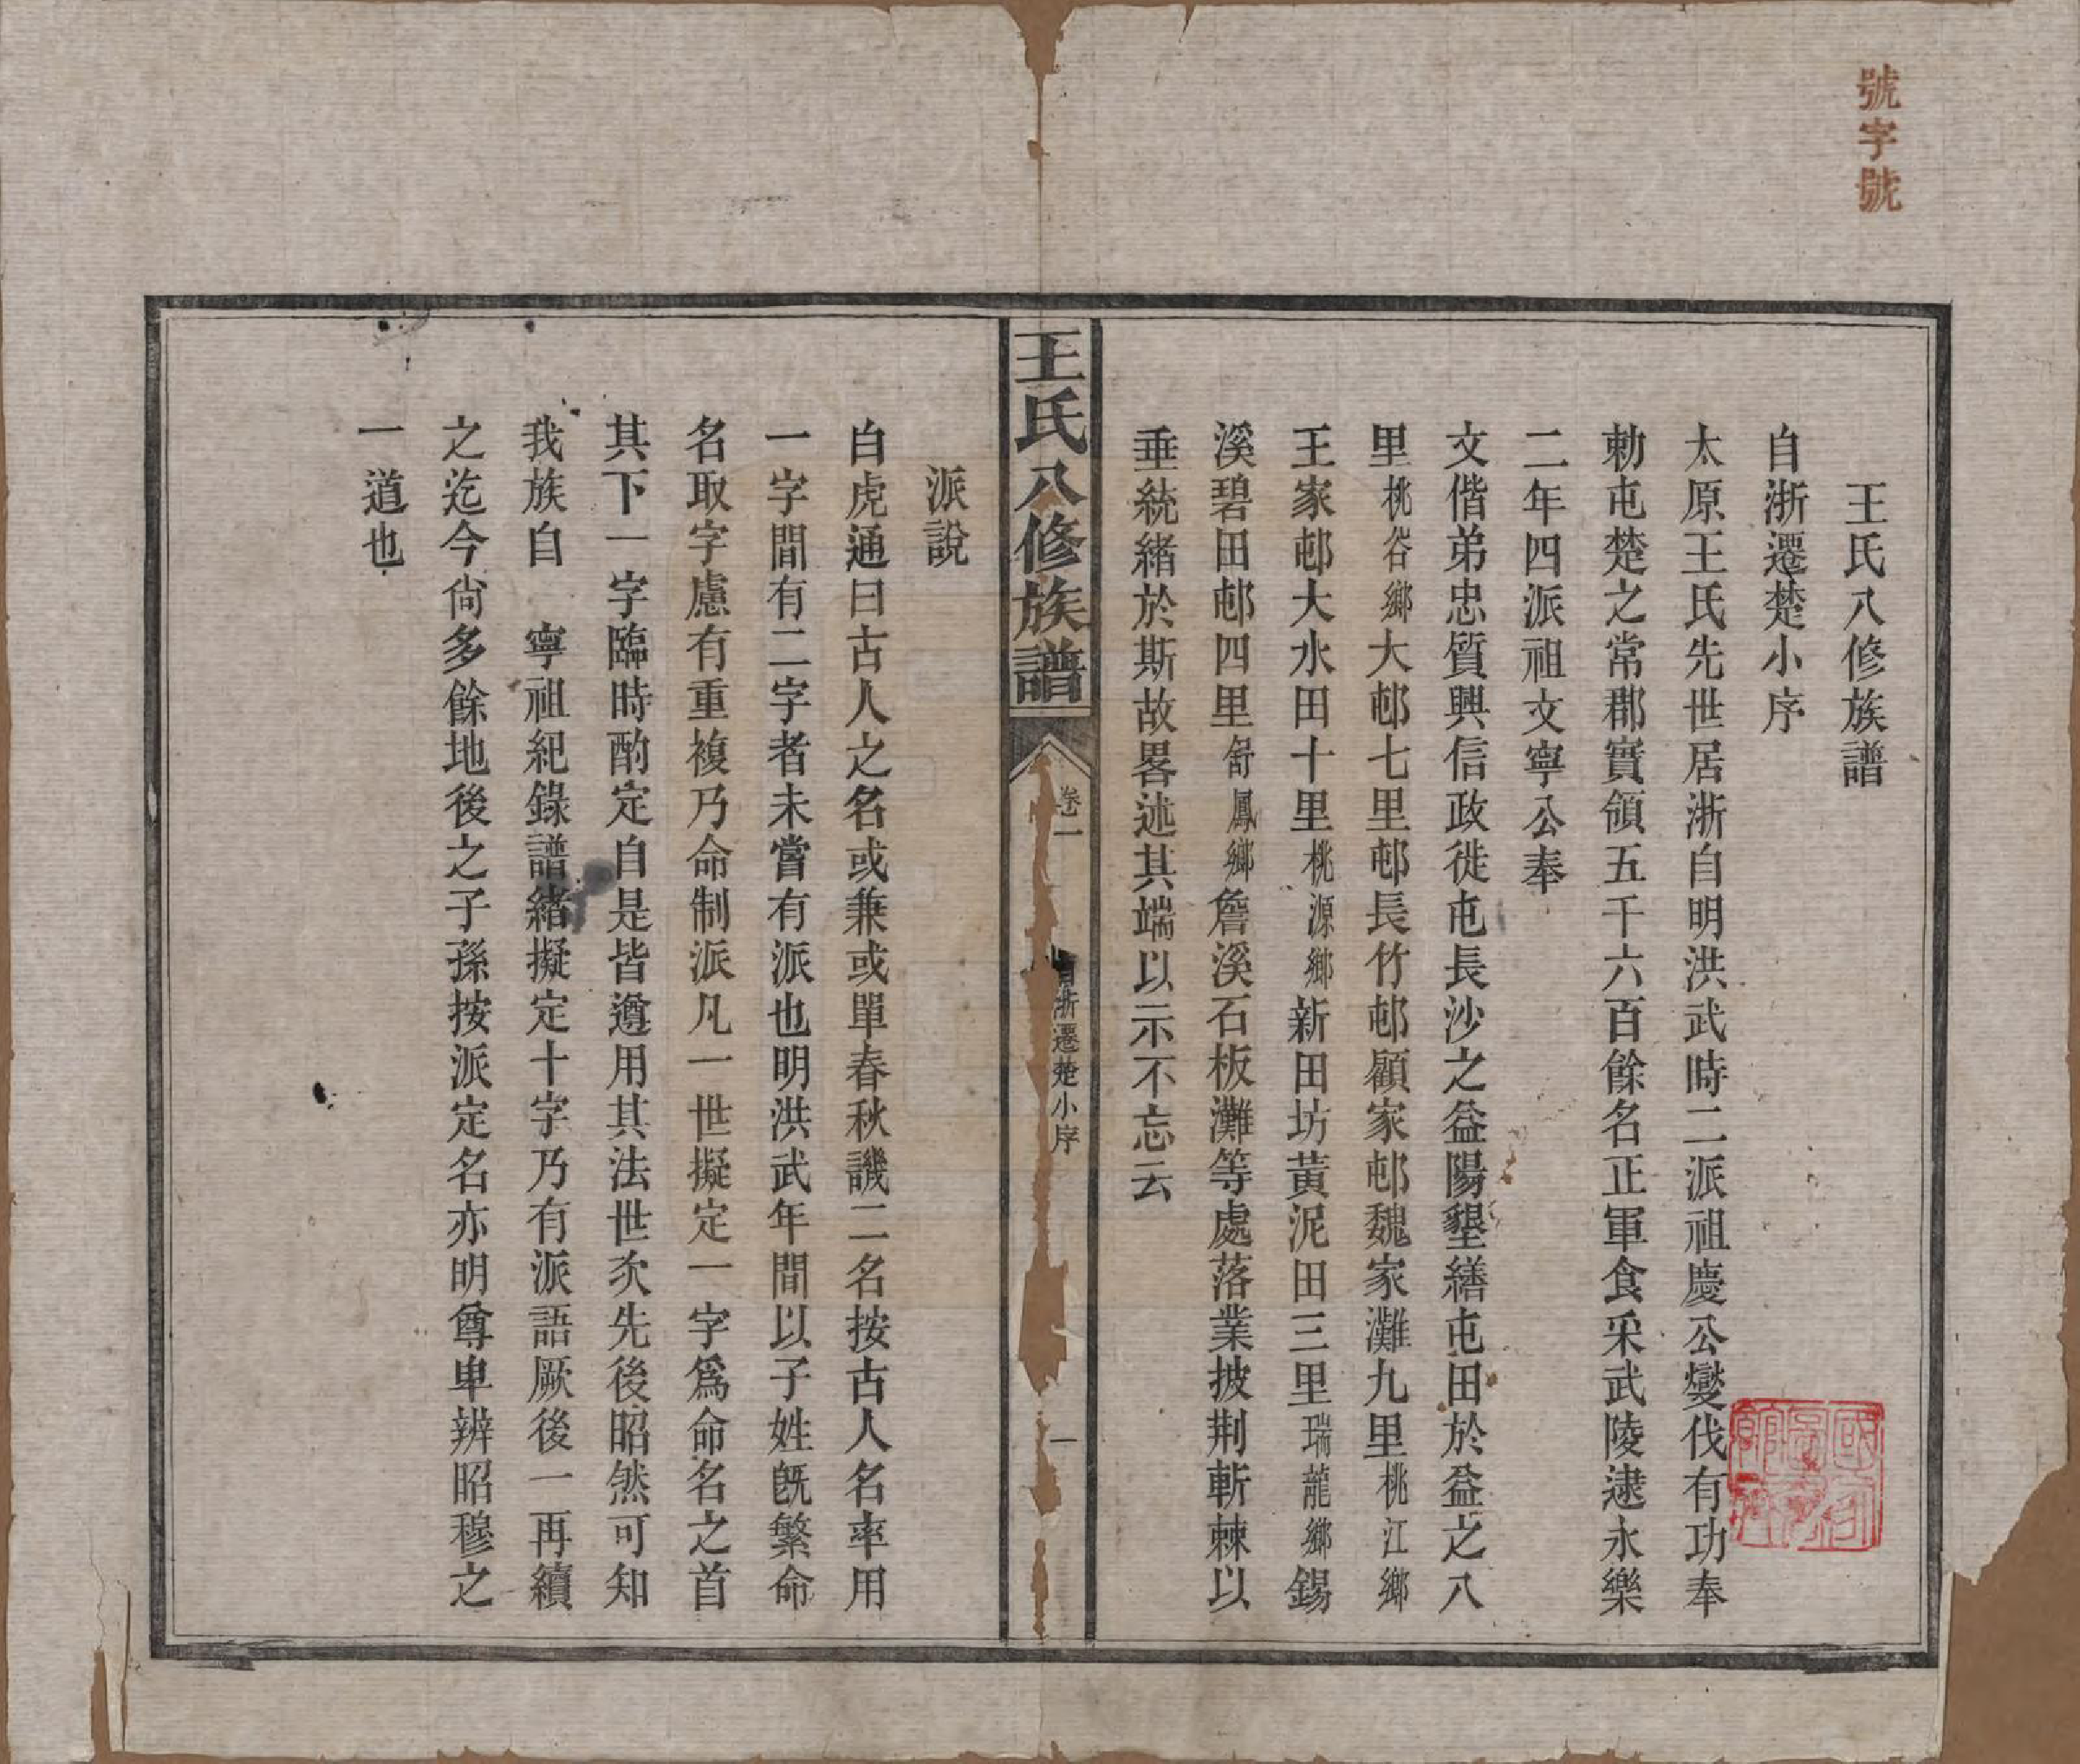 號字號
王氏八修族譜
自浙遷楚小序
太原王氏先世居浙自明洪武時二派祖慶公燮伐有功奉
勅屯楚之常郡實領五千六百餘名正軍食采武陵逮永樂
二年四派祖文寧公奉
文偕弟忠質興信政徙屯長沙之益陽墾繕屯田於益之八
里桃谷鄉大邨七里邨長竹邨顧家邨魏家灘九里桃江鄉
王家邨大水田十里桃源鄉新田坊黃泥田三里瑞龍鄉錫
溪碧田邨四里舒鳳鄉詹溪石板灘等處落業披荆斬棘以
垂統緒於斯故畧述其端以示不忘云
王氏八修族譜
卷一
自浙遷楚小序
一
派說
白虎通曰古人之名或兼或單春秋譏二名按古人名率用
一字間有二字者未嘗有派也明洪武年間以子姓旣繁命
名取字慮有重複乃命制派凡一世擬定一字爲命名之首
其下一字臨時酌定自是皆遵用其法世次先後昭然可知
我族自　寧祖紀錄譜緒擬定十字乃有派語厥後一再續
之迄今尙多餘地後之子孫按派定名亦明尊卑辨昭穆之
一道也